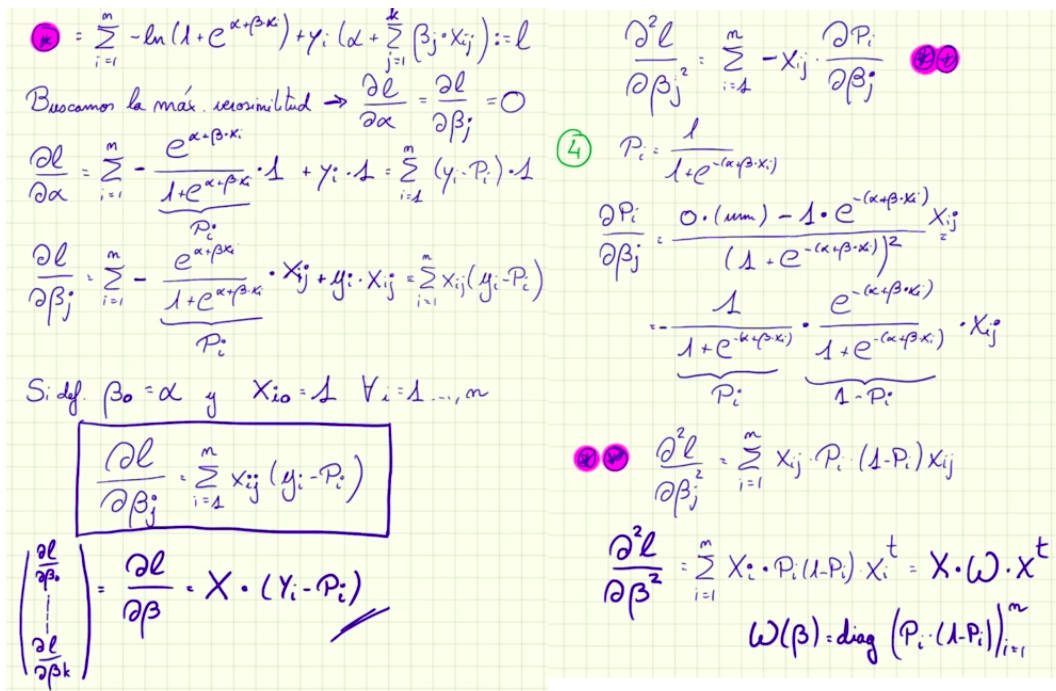 * = Σ_{i=1}^{n} -ln(1+e^{α+β·x_i}) + y_i (α + Σ_{j=1}^{k} β_j·x_{ij}) := l
Buscamos la máx. verosimilitud → ∂l/∂α = ∂l/∂β_j = 0
∂l/∂α = Σ_{i=1}^{n} - e^{α+β·x_i}/(1+e^{α+β·x_i}) ·1 + y_i·1 = Σ_{i=1}^{n} (y_i-P_i)·1
P_i
∂l/∂β_j = Σ_{i=1}^{n} - e^{α+βx_i}/(1+e^{α+β·x_i}) · x_{ij} + y_i·x_{ij} = Σ_{i=1}^{n} x_{ij}(y_i-P_i)
P_i
Si def. β_0 = α y x_{i0} = 1 ∀i=1...,n
∂l/∂β_j = Σ_{i=1}^{n} x_{ij} (y_i-P_i)
(∂l/∂β_0 ¦ ∂l/∂β_k) = ∂l/∂β = X·(Y_i-P_i)
∂²l/∂β_j² = Σ_{i=1}^{n} -x_{ij} · ∂P_i/∂β_j **
4 P_i = 1/(1+e^{-(α+β·x_i)})
∂P_i/∂β_j = (0·(mm) - 1·e^{-(α+β·x_i)})/(1+e^{-(α+β·x_i)})² x_{ij}
= - 1/(1+e^{-(α+β·x_i)}) · e^{-(α+β·x_i)}/(1+e^{-(α+β·x_i)}) · x_{ij}
P_i 1-P_i
** ∂²l/∂β_j² = Σ_{i=1}^{n} x_{ij}·P_i·(1-P_i)x_{ij}
∂²l/∂β² = Σ_{i=1}^{n} X_i·P_i(1-P_i)·X_i^t = X·W·X^t
W(β) = diag (P_i·(1-P_i))|_{i=1}^{n}